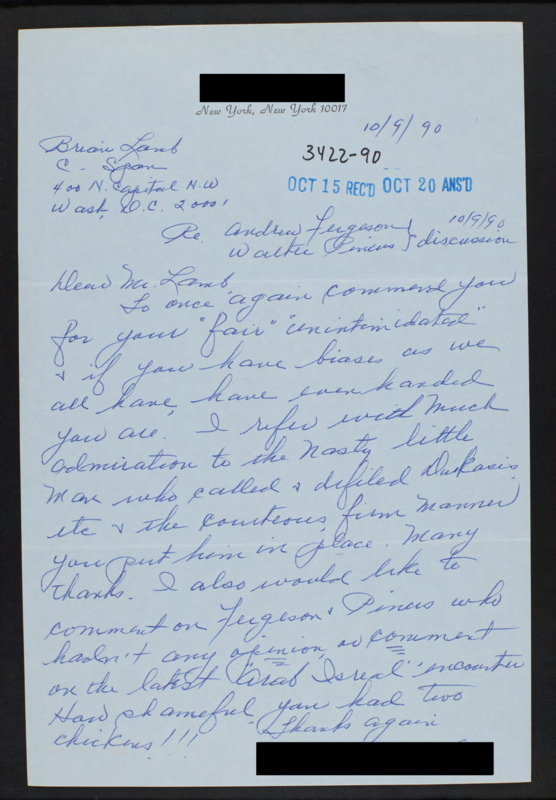 New York, New York 10017
10/9/90
Brian Lamb
C. Span
400 N. Capital N.W
Wash, D.C. 20001
3422-90
OCT 15 REC'D OCT 20 ANS'D
Re. Andrew Fergeson } 10/9/90
Walter Pincus } discussion
Dear Mr. Lamb
To once again commend you
for your "fair" "unintimidated"
& if you have biases as we
all have, have evenhanded
you are. I refer with much
admiration to the nasty little
man who called & difiled Dukasis
etc & the courteous, firm manner
you put him in place. Many
thanks. I also would like to
comment on Fergeson & Pincus who
hadn't any opinion or comment
on the latest "Arab Isreal" encounter
How shameful, you had two
chickens!!! Thanks again